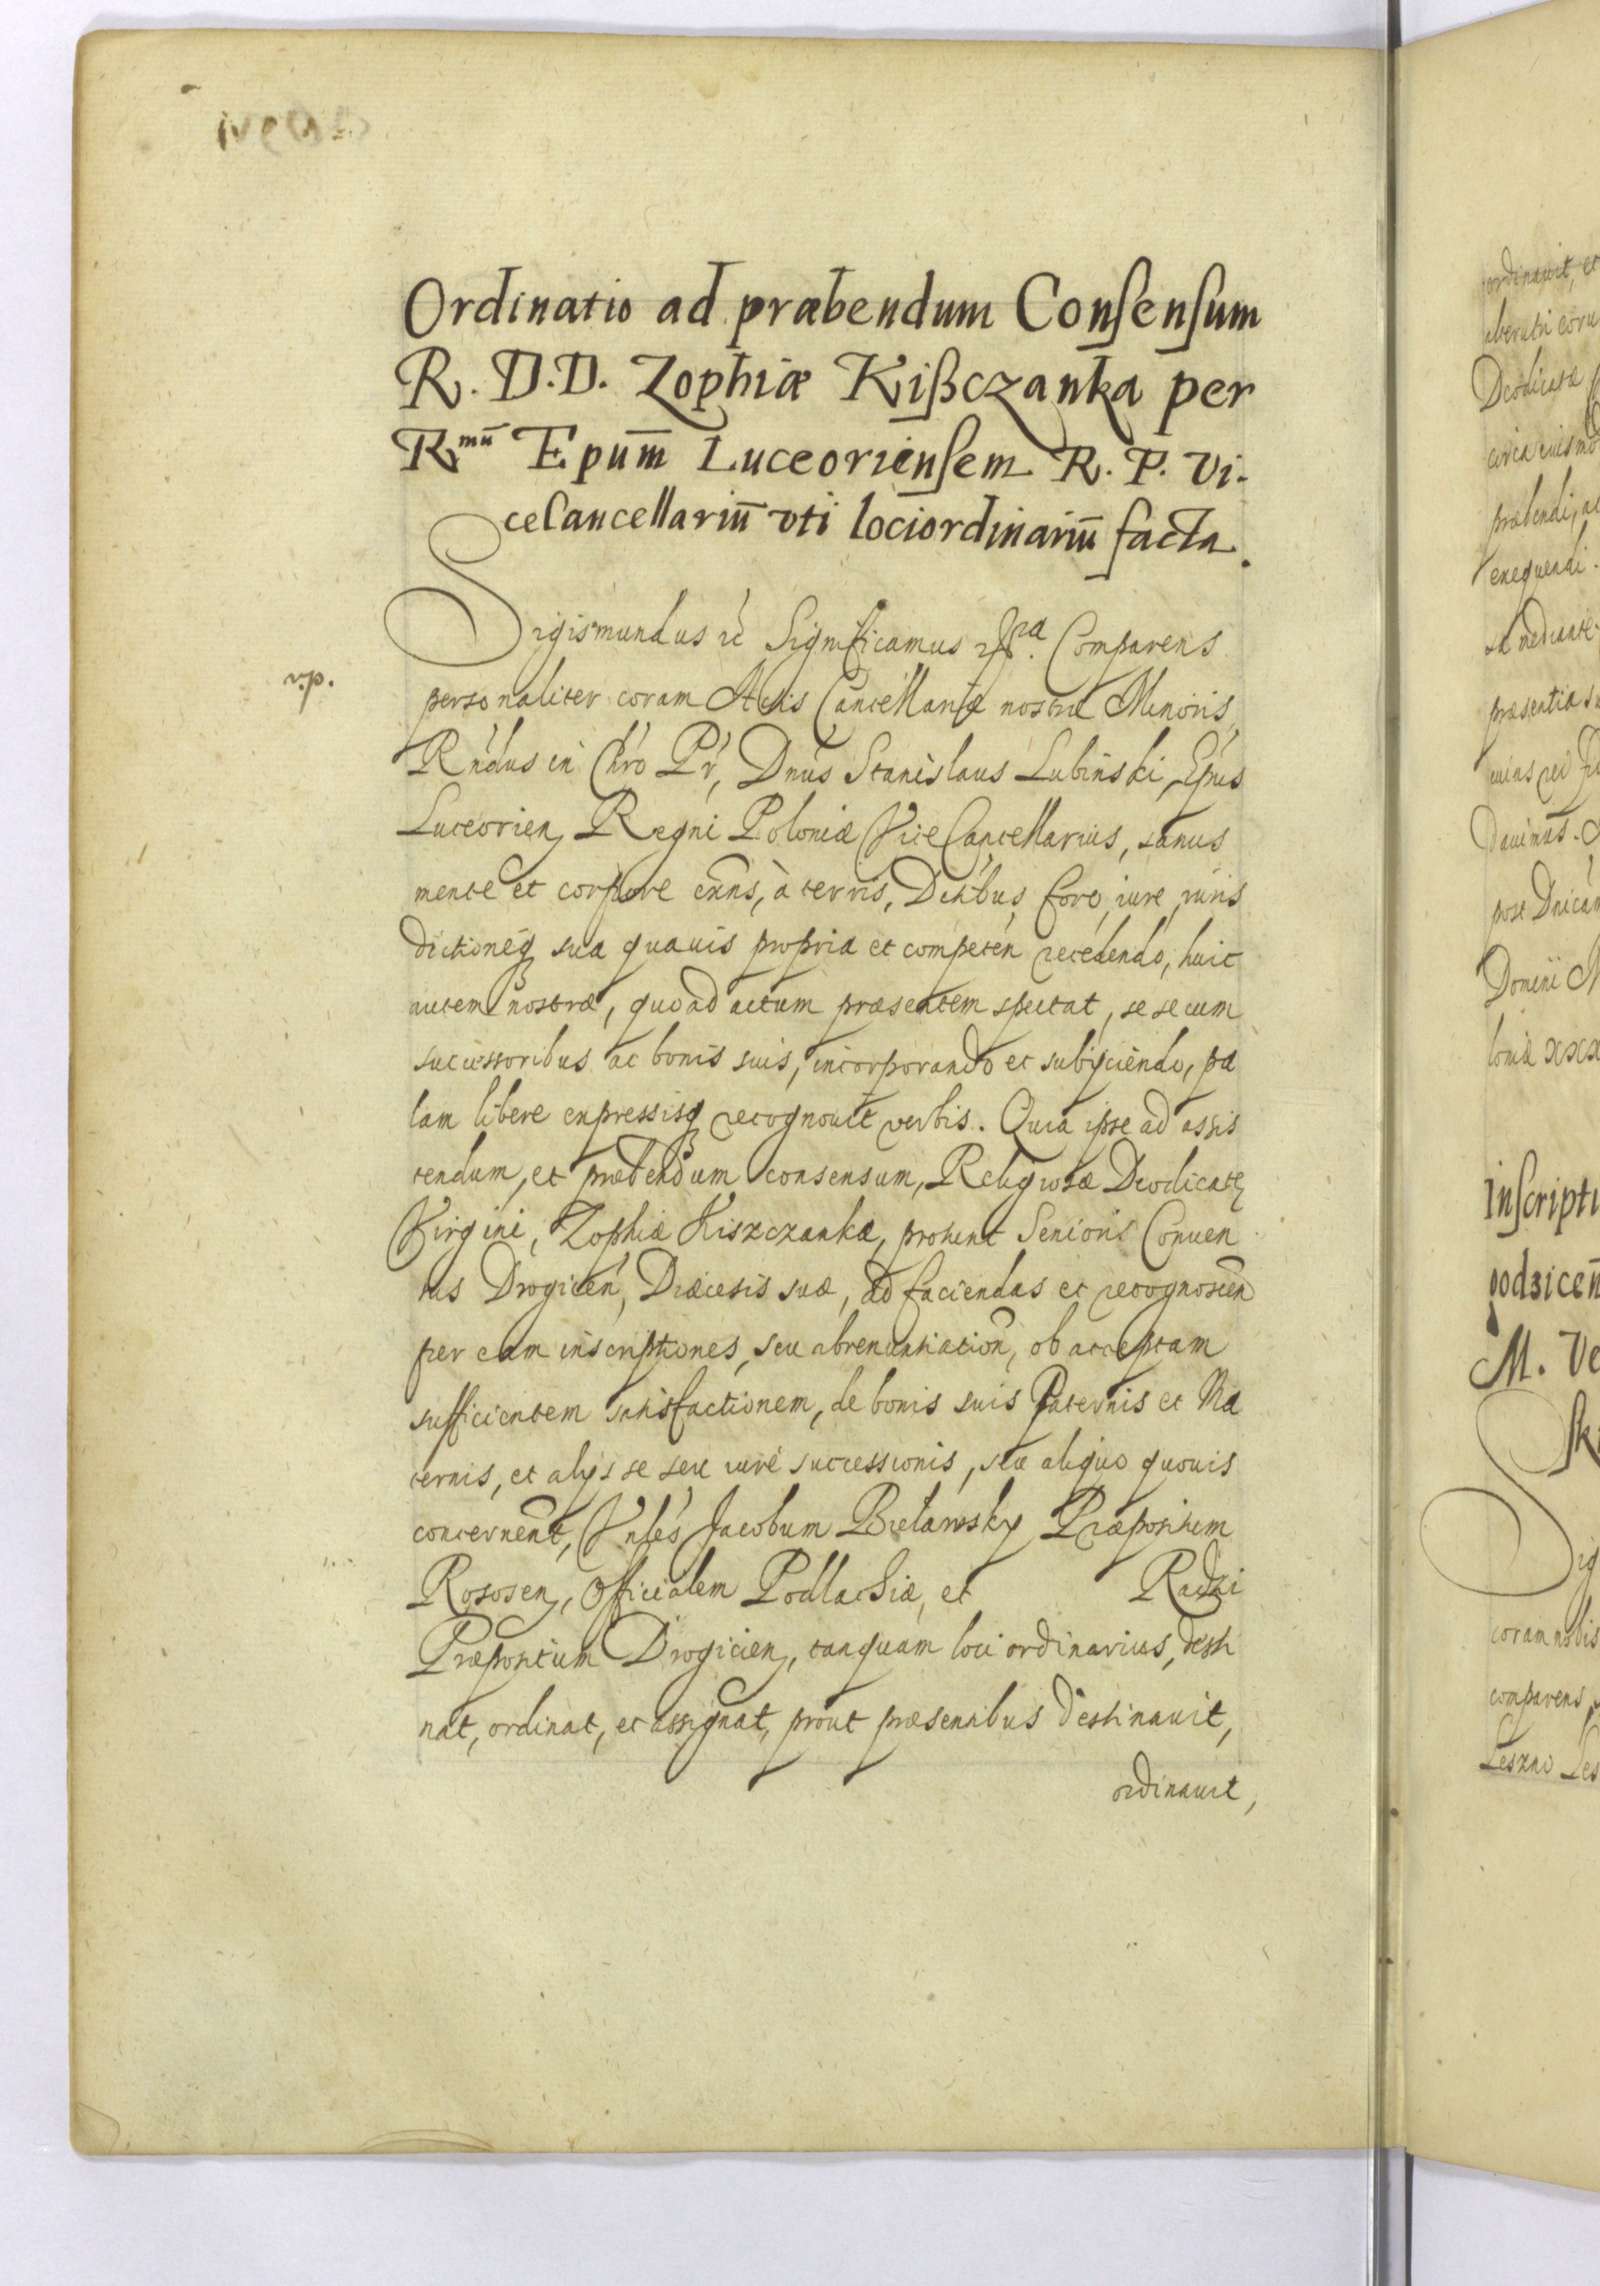 Ordinatio ad præbendum Consensum
R. D. D. Zophiæ Kißczanka per
Rmū Epum̄ Luceoriensem R. P. Vi-
ceCancellariū vti lociordinariū facta.
Sigismundus rc Significamus Comparens
v.p.
personaliter coram Actis Cancellariæ nostræ Minoris,
Rndus in Chro Pr, Dnus Stanislaus Lubinski, Epus
Luceorien, Regni Poloniæ ViceCancellarius, sanus
mente et corpore exns, à terris, Ditibus, foro, iure, iuris
dictioneq sua quauis propria et competen recedendo, huic
autem nostræ, quoad actum præsentem spectat, se se cum
successoribus ac bonis suis, incorporando et subijciendo, pa
lam libere expressisq recognouit verbis. Quia ipse ad assis
tendum, et præbendum consensum, Religiosæ Deodicatę
Virgini, Zophiæ Kiszczankæ, prohunt Senioris Conuen
tus Drogicen, Diæcesis suæ, ad faciendas et recognoscen
per eam inscriptiones, seu abrenuntiation, ob acceptam
sufficientem satisfactionem, de bonis suis Paternis et Ma
ternis, et alijs se seu iure successionis, seu aliquo quouis
concernent, Vnles Jacobum Bielawsky Præpositum
Rososen, Officialem Podlachiæ, et Radzi
Præpositum Drogicien, tanquam loci ordinarius, desti
nat, ordinat, et assignat, prout præsentibus destinauit,
ordinauit,
ordinauit, et
Deodicatæ
circa eiusmo
præbendi, ac
exequendi.
præsentia su
post Dnicam
Domini M
loniæ xxx
Inscripti
M. Ve
Sig
coram nobis
comparens
Leszno Les